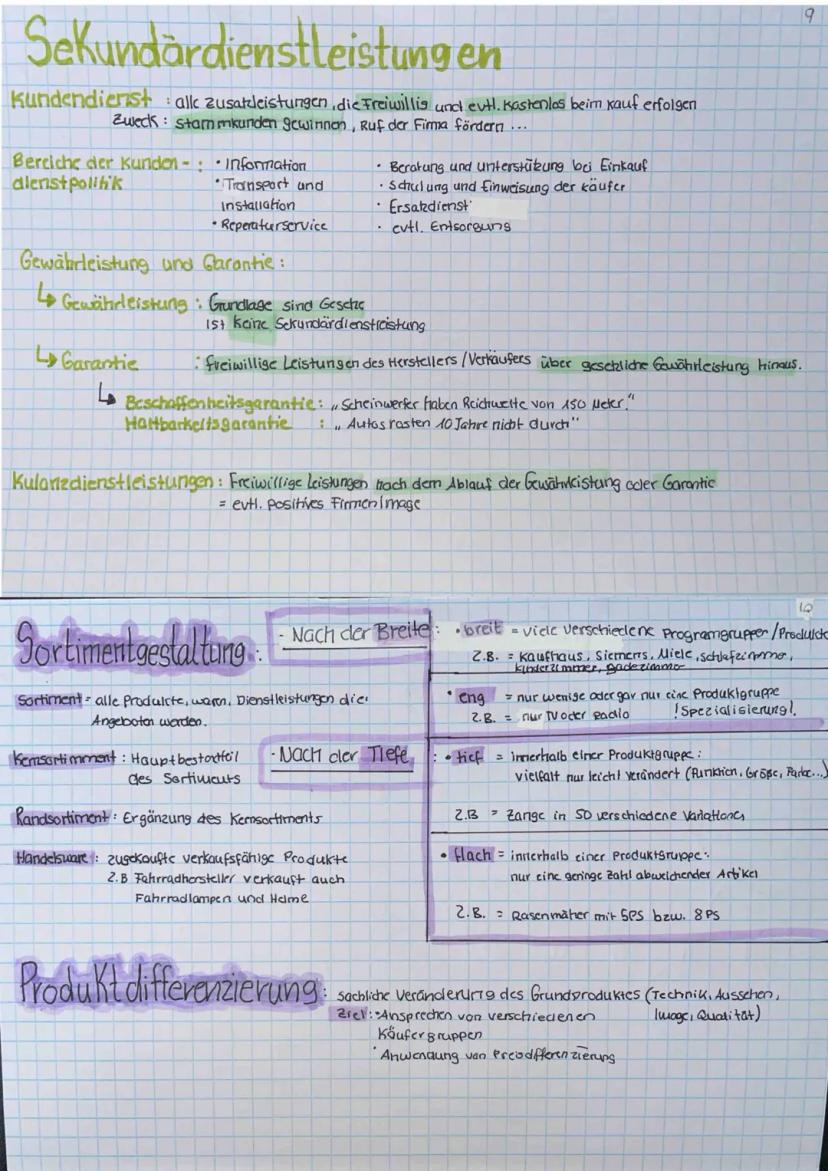 9
Sekundärdienstleistungen
Kundendienst : alle Zusatzleistungen, die Freiwillig und evtl. Kostenlos beim Kauf erfolgen
Zweck : Stammkunden gewinnen, Ruf der Firma fördern ...
Bereiche der Kunden- : • Information
dienstpolitik • Transport und
Installation
• Reperaturservice
• Beratung und Unterstützung bei Einkauf
• Schulung und Einweisung der Käufer
• Ersatzdienst
• evtl. Entsorgung
Gewährleistung und Garantie :
↳ Gewährleistung : Grundlage sind Gesetze
Ist Keine Sekundärdienstleistung
↳ Garantie : freiwillige Leistungen des Herstellers / Verkäufers über gesetzliche Gewährleistung hinaus.
↳ Beschaffenheitsgarantie : „Scheinwerfer haben Reichweite von 150 Meter."
Haltbarkeitsgarantie : „Autos rosten 10 Jahre nicht durch"
Kulanzdienstleistungen : Freiwillige Leistungen nach dem Ablauf der Gewährleistung oder Garantie
= evtl. positives Firmenimage
10
Sortimentgestaltung :
Sortiment = alle Produkte, waren, Dienstleistungen die
Angeboten werden.
Kernsortimment : Hauptbestandteil
des Sortiments
Randsortiment : Ergänzung des Kernsortiments
Handelsware : zugekaufte verkaufsfähige Produkte
Z.B Fahrradhersteller verkauft auch
Fahrradlampen und Helme
- Nach der Breite :
• breit = viele verschiedene Programgruppen / Produkte
Z.B. = Kaufhaus, Siemens, Miele, Schlafzimmer,
Kinderzimmer, Badezimmer
• eng = nur wenige oder gar nur eine Produktgruppe
Z.B. = nur TV oder Radio ! Spezialisierung !
- Nach der Tiefe :
• tief = innerhalb einer Produktgruppe :
vielfalt nur leicht verändert (Funktion, Größe, Farbe...)
Z.B = Zange in 50 verschiedene Variationen
• flach = innerhalb einer Produktgruppe :
nur eine geringe Zahl abweichender Artikel
Z.B. = Rasenmäher mit 5PS bzw. 8PS
Produktdifferenzierung : sachliche Veränderung des Grundproduktes (Technik, Aussehen,
Image, Qualität)
Ziel : • Ansprechen von verschiedenen
Käufergruppen
• Anwendung von Preisdifferenzierung